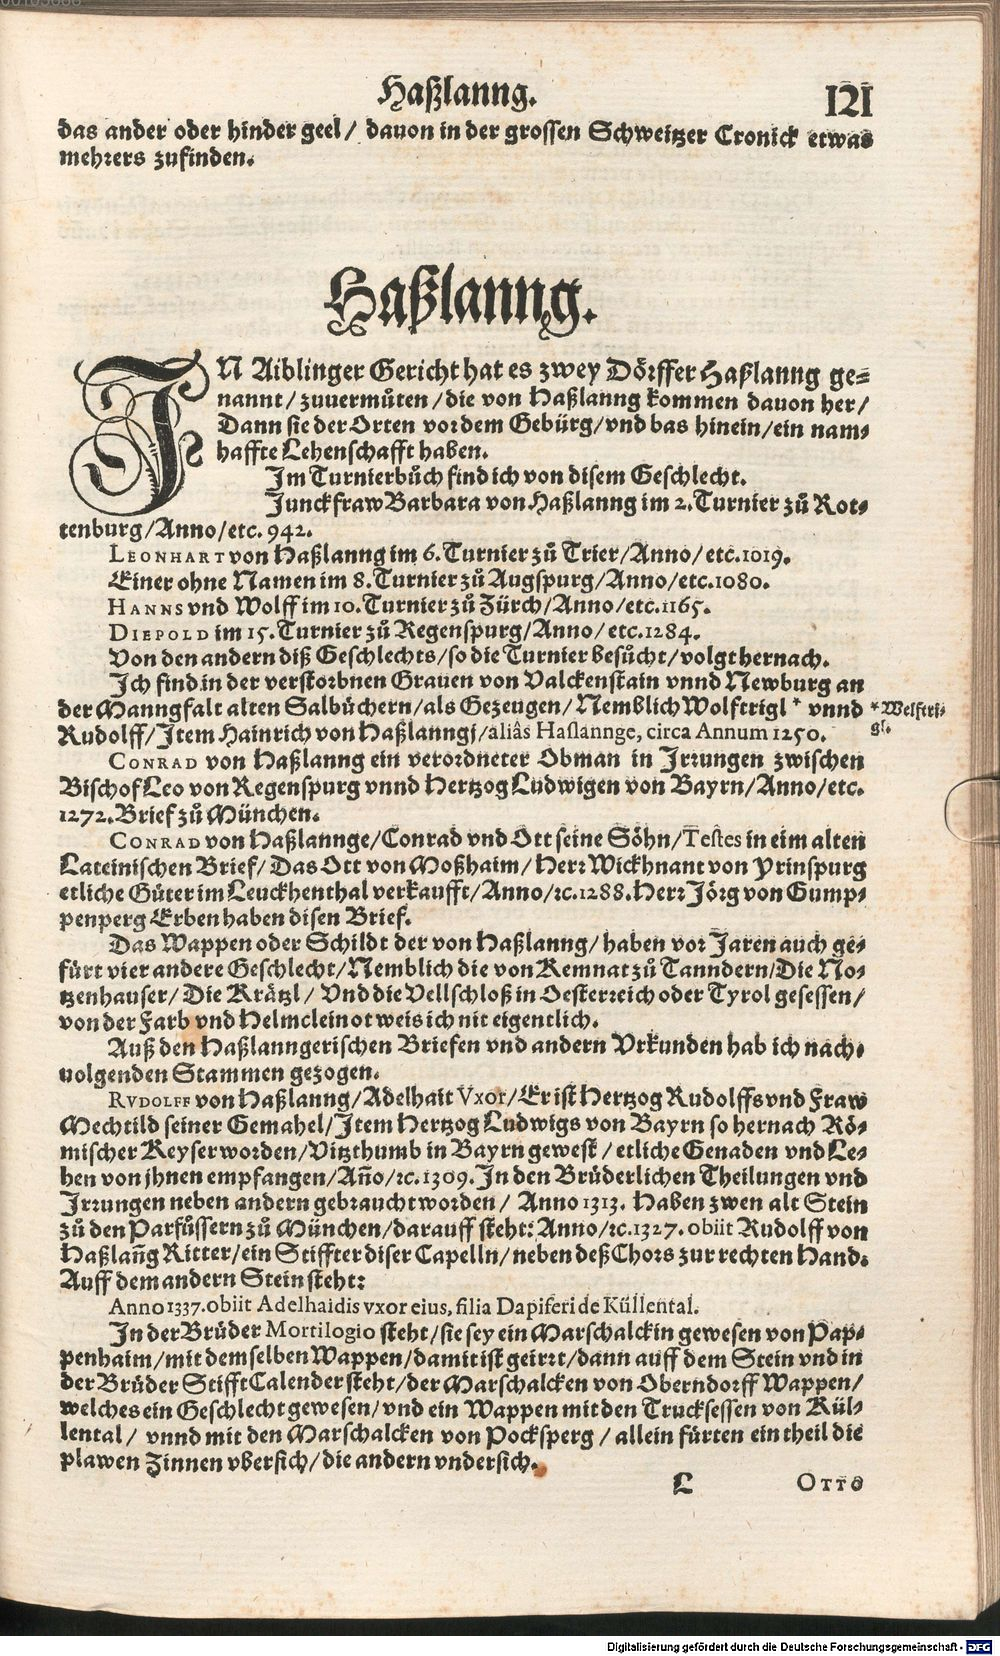 Haßlanng.
121
das ander oder hinder geel/ dauon in der grossen Schweitzer Cronick etwas
mehrers zufinden.
Haßlanng.
IN Aiblinger Gericht hat es zwey Dörffer Haßlanng ge=
nannt/ zuuermůten/die von Haßlanng kommen dauon her/
Dann sie der Orten vor dem Gebürg/vnd bas hinein/ein nam=
haffte Lehenschafft haben.
Im Turnierbůch find ich von disem Geschlecht.
Junckfraw Barbara von Haßlanng im 2. Turnier zů Rot=
tenburg/Anno/etc. 942.
LEONHART von Haßlanng im 6. Turnier zů Trier/Anno/etc.1019.
Einer ohne Namen im 8. Turnier zů Augspurg/Anno/etc.1080.
HANNS vnd Wolff im 10. Turnier zů Zürch/Anno/etc.1165.
DIEPOLD im 15. Turnier zů Regenspurg/Anno/etc.1284.
Von den andern diß Geschlechts/so die Turnier besůcht/volgt hernach.
Ich find in der verstorbnen Grauen von Valckenstain vnnd Newburg an
der Manngfalt alten Salbůchern/als Gezeugen/Nemblich Wolftrigl * vnnd
* Welftri=
gl.
Rudolff/Item Hainrich von Haßlanngj/aliâs Haslannge, circa Annum 1250.
CONRAD von Haßlanng ein verordneter Obman in Irrungen zwischen
Bischof Leo von Regenspurg vnnd Hertzog Ludwigen von Bayrn/Anno/etc.
1272. Brief zů München.
CONRAD von Haßlannge/Conrad vnd Ott seine Söhn/Testes in eim alten
Lateinischen Brief/Das Ott von Moßhaim/Herr Wickhnant von Yrinspurg
etliche Güter im Leuckhenthal verkaufft/Anno/ꝛc.1288. Herr Jörg von Gump=
penperg Erben haben disen Brief.
Das Wappen oder Schildt der von Haßlanng/haben vor Jaren auch ge=
fürt vier andere Geschlecht/Nemblich die von Kemnat zů Tanndern/Die No=
tzenhauser/Die Krätzl/Vnd die Vellschloß in Oesterreich oder Tyrol gesessen/
von der Farb vnd Helmcleinot weis ich nit eigentlich.
Auß den Haßlanngerischen Briefen vnd andern Vrkunden hab ich nach=
uolgenden Stammen gezogen.
RVDOLFF von Haßlanng/Adelhait Vxor/Er ist Hertzog Rudolffs vnd Fraw
Mechtild seiner Gemahel/Item Hertzog Ludwigs von Bayrn so hernach Rö=
mischer Keyser worden/Vitzthumb in Bayrn gewest/etliche Genaden vnd Le=
hen von jhnen empfangen/Año/ꝛc.1309. In den Brüderlichen Theilungen vnd
Irrungen neben andern gebraucht worden/Anno 1313. Haben zwen alt Stein
zů den Parfüssern zů München/darauff steht: Anno/ꝛc.1327. obiit Rudolff von
Haßlañg Ritter/ein Stiffter diser Capelln/neben deß Chors zur rechten Hand.
Auff dem andern Stein steht:
Anno 1337. obiit Adelhaidis vxor eius, filia Dapiferi de Küllental.
In der Brüder Mortilogio steht/sie sey ein Marschalckin gewesen von Pap=
penhaim/mit demselben Wappen/damit ist geirrt/dann auff dem Stein vnd in
der Brüder Stifft Calender steht/der Marschalcken von Oberndorff Wappen/
welches ein Geschlecht gewesen/vnd ein Wappen mit den Trucksessen von Kül=
lental/ vnnd mit den Marschalcken von Pocksperg/allein fürten ein theil die
plawen Zinnen vbersich/die andern vndersich.
L
OTTO
Digitalisierung gefördert durch die Deutsche Forschungsgemeinschaft - DFG